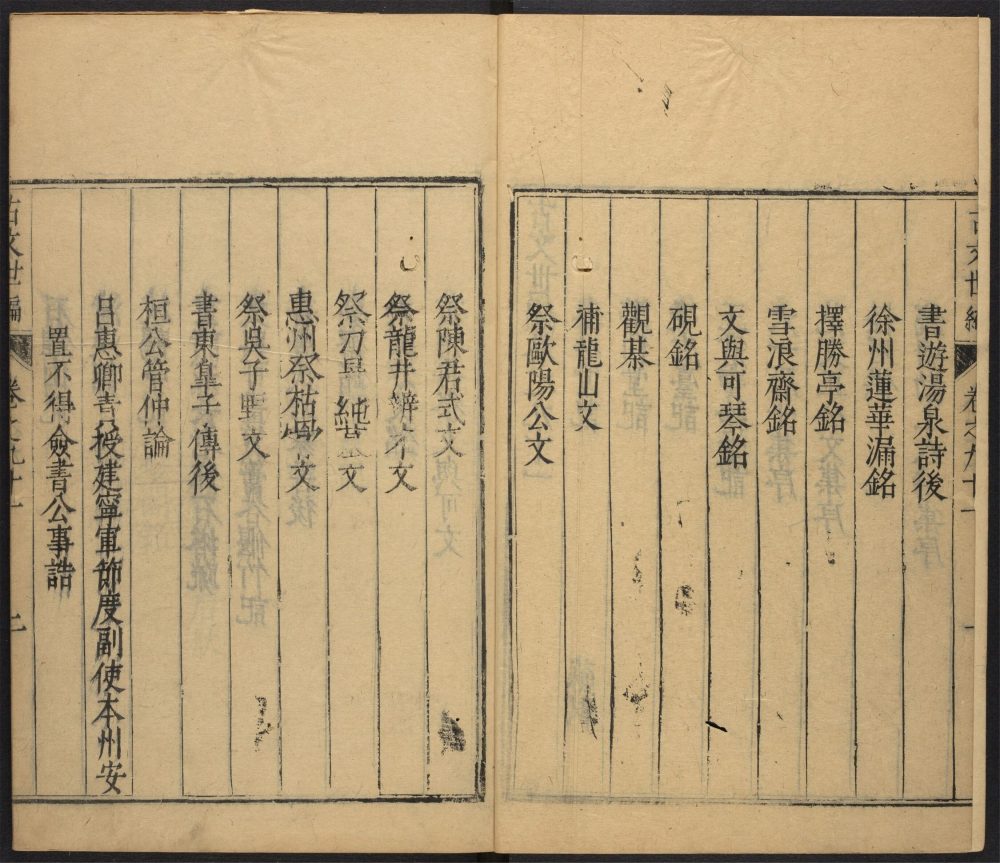 書遊湯泉詩後
徐州蓮華漏銘
擇勝亭銘
雪浪齋銘
文與可琴銘
硯銘
觀棊
補龍山文
祭歐陽公文
祭陳君式文
祭龍井辨才文
祭刀景純墓文
惠州祭枯骨文
祭吳子野文
書東皐子傳後
桓公管仲論
呂惠卿責授建寧軍節度副使本州安
置不得僉書公事誥
古文世編
卷之九十一
二